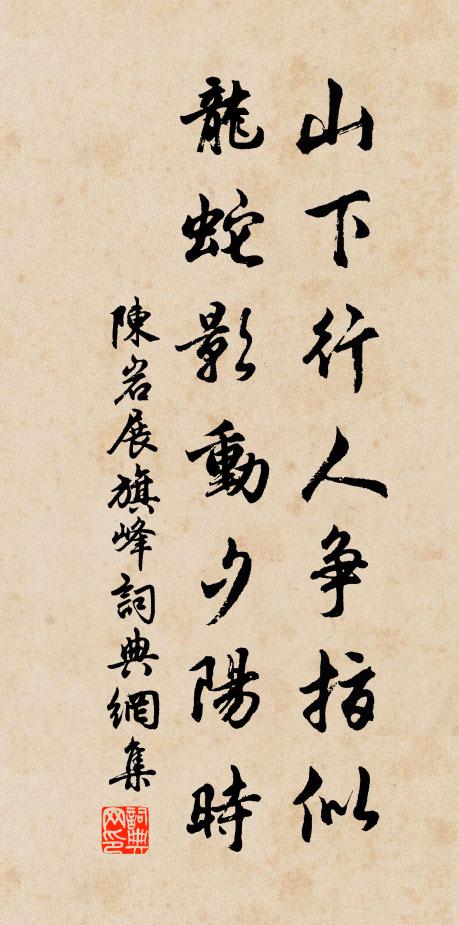 山下行人争指似
龍蛇影動夕陽時
陳岩展旗峰詞典網集
詞典网印